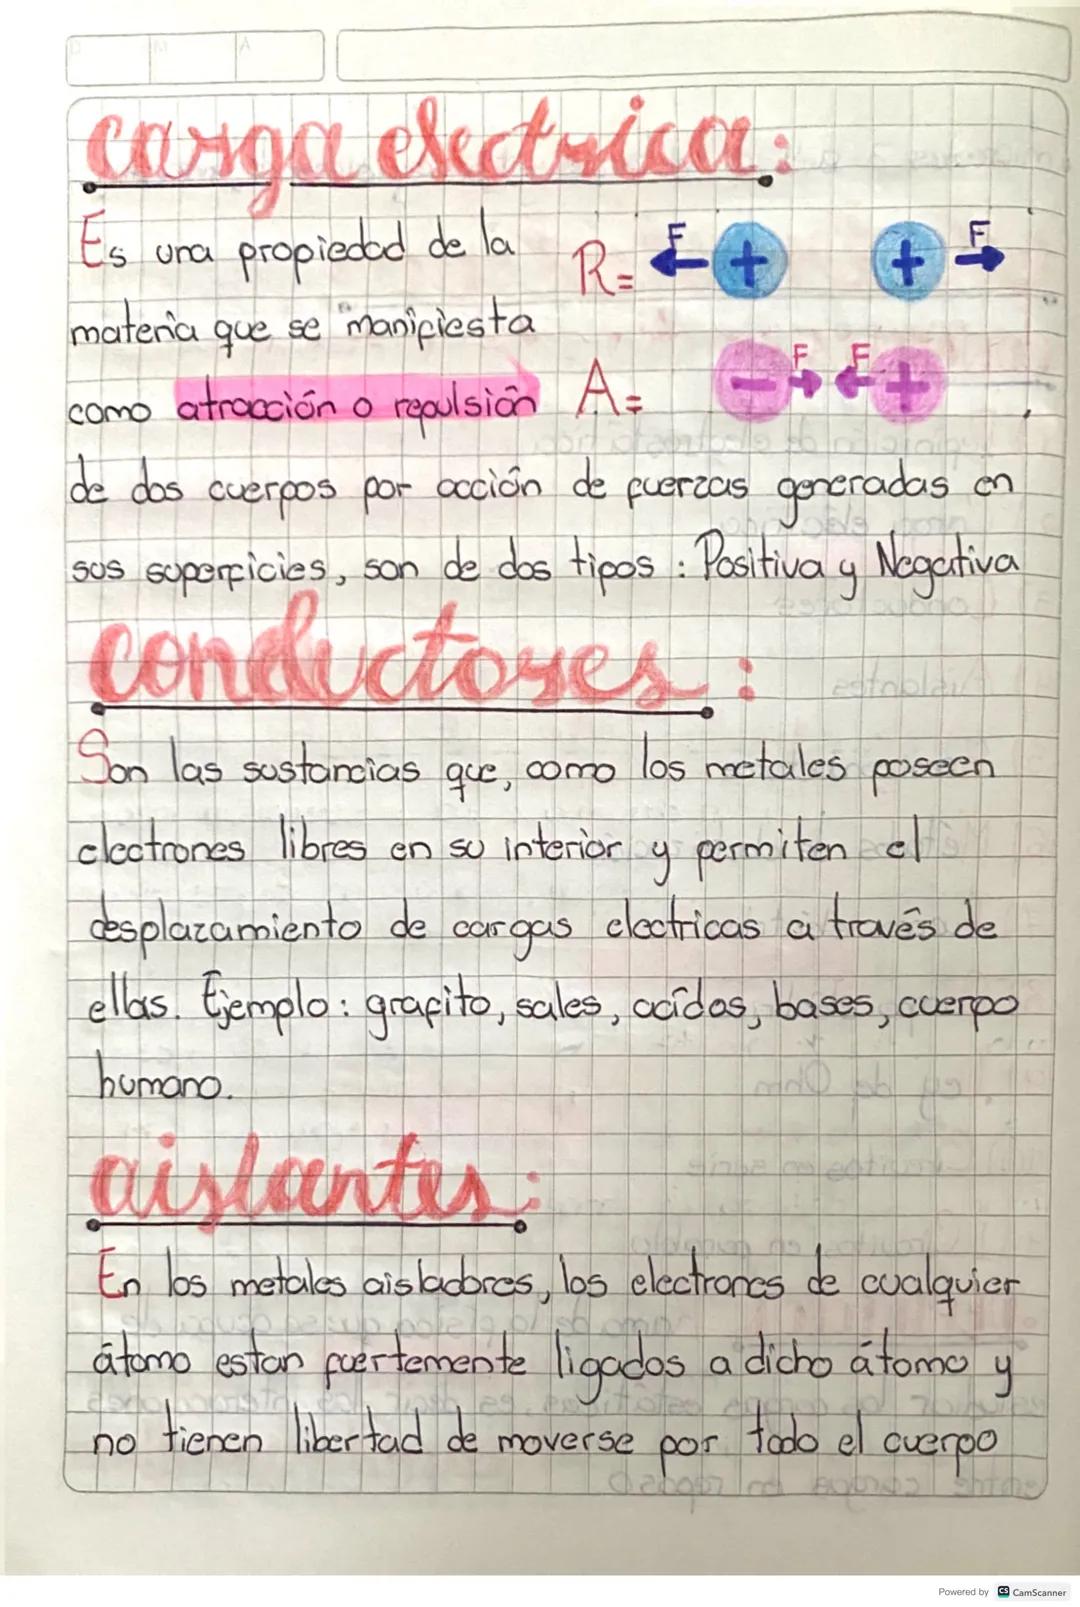 D M A
carga electrica:
Es una propiedad de la
materia que se manifiesta
como atracción o repulsión
R= F + + F
A= - F F +
de dos cuerpos por acción de fuerzas generadas en
sus superficies, son de dos tipos: Positiva y Negativa
conductores:
Son las sustancias que, como los metales poseen
electrones libres en su interior y permiten el
desplazamiento de cargas electricas a través de
ellas. Ejemplo: grafito, sales, acídos, bases, cuerpo
humano.
aislantes:
En los metales aisladores, los electrones de cualquier
átomo estan fuertemente ligados a dicho átomo y
no tienen libertad de moverse por todo el cuerpo
Powered by CS CamScanner